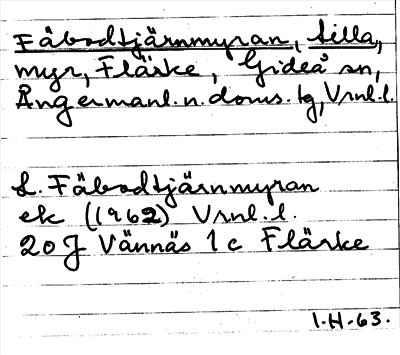 Fäbodtjärnmyran, lilla,
myr, Flärke, Gideå sn,
Ångermanl. n. doms. tg, Vrnl. l.
L. Fäbodtjärnmyran
ek (1962) Vrnl. l.
20 J Vännäs 1 c Flärke
I.H.-63.